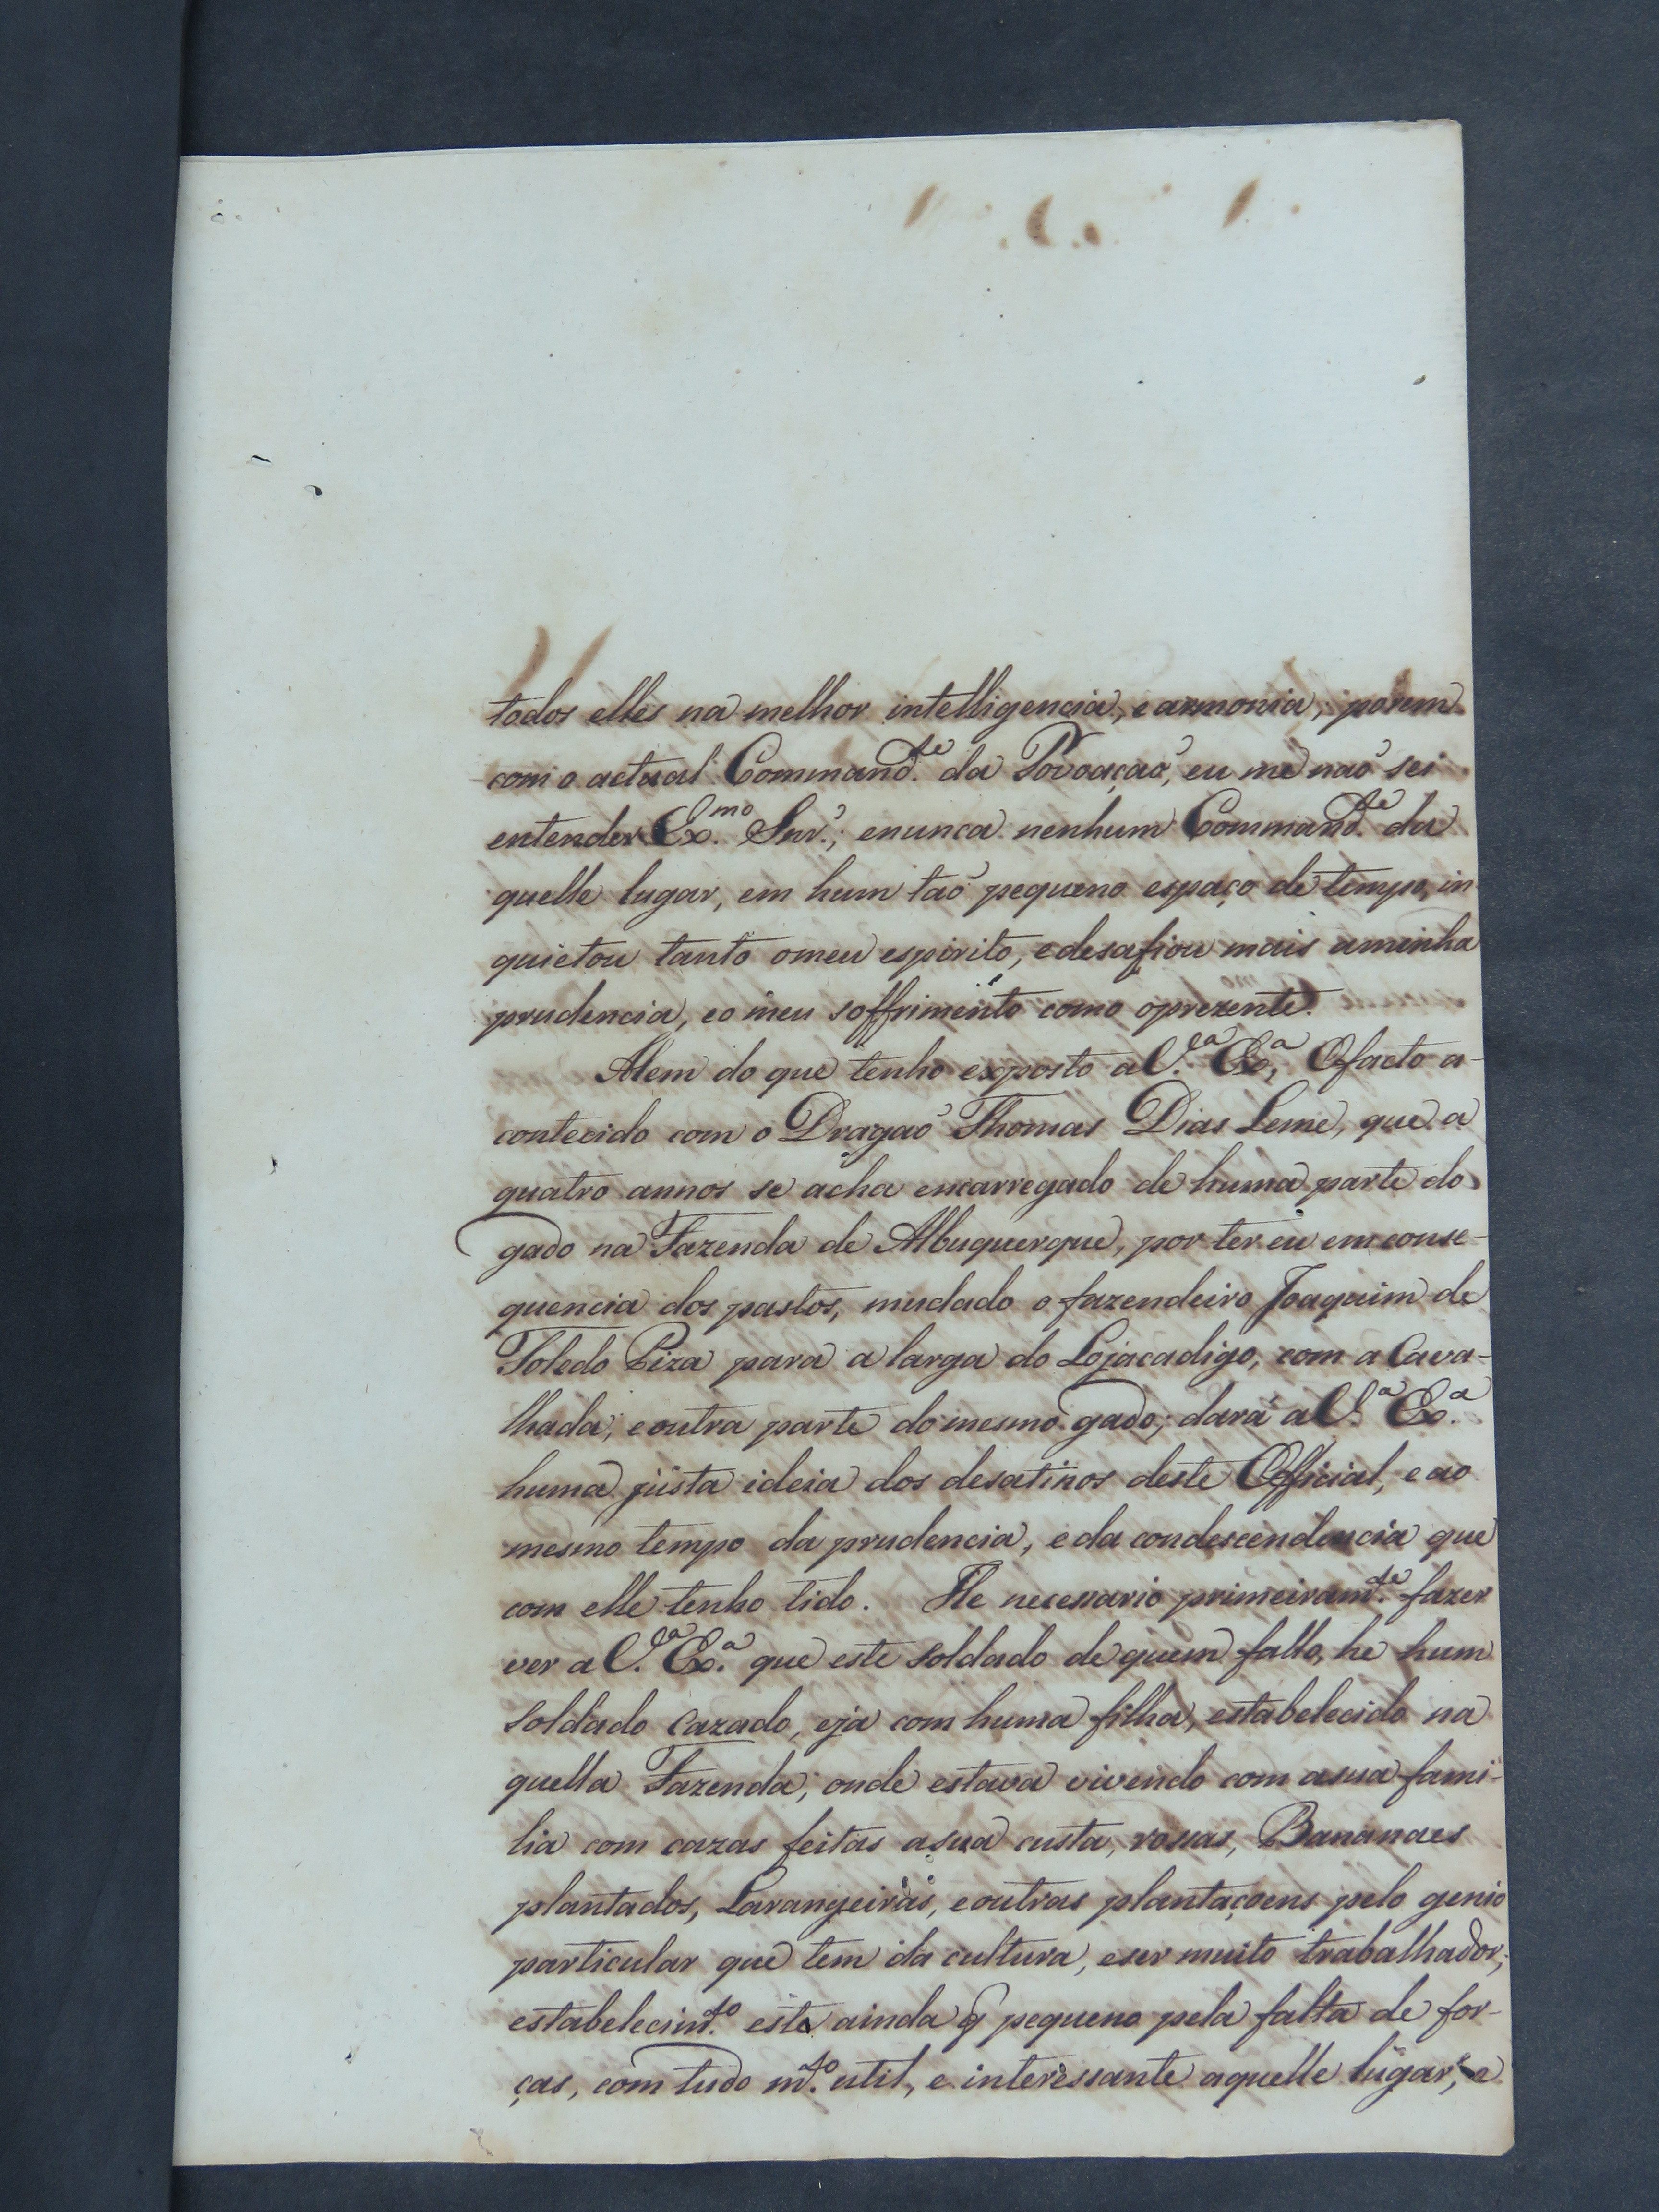 todos elles na melhor intelligencia, e armonia, porem
com o actual Command.te da Povoaçaõ, eu me naõ sei
entender Ex.mo Snr.; enunca nenhum Command.te da
quelle lugar, em hum taõ pequeno espaço de tempo, in
quietou tanto omeu espirito, edesafiou mais aminha
prudencia, eo meu soffrimento como oprezente.
Alem do que tenho exposto a V.a Ex.a, O facto a-
contecido com o Dragaõ Thomas Dias Leme, que a
quatro annos se acha encarregado de huma parte do
gado na Fazenda de Albuquerque, por ter eu em conse-
quencia dos pastos, mudado o fazendeiro Joaquim de
Toledo Piza para a larga do Lojacadigo, com a Cava-
lhada, eoutra parte do mesmo gado; dará a V.a Ex.a
huma justa ideia dos desatinos deste Official, e ao
mesmo tempo da prudencia, e da condescendencia que
com elle tenho tido. He necessario primeiram.te fazer
ver a V.a Ex.a que este soldado de quem fallo, he hum
soldado cazado, eja com huma filha, estabelecido na
quella Fazenda; onde estava vivendo com asua fami-
lia com cazas feitas asua custa, rossas, Bananaes
plantados, Larangeiras, eoutras plantaçoens pelo genio
particular que tem da cultura, eser muito trabalhador;
estabelecim.to este ainda q pequeno pela falta de for-
ças, com tudo m.to util, e interessante aquelle lugar, e